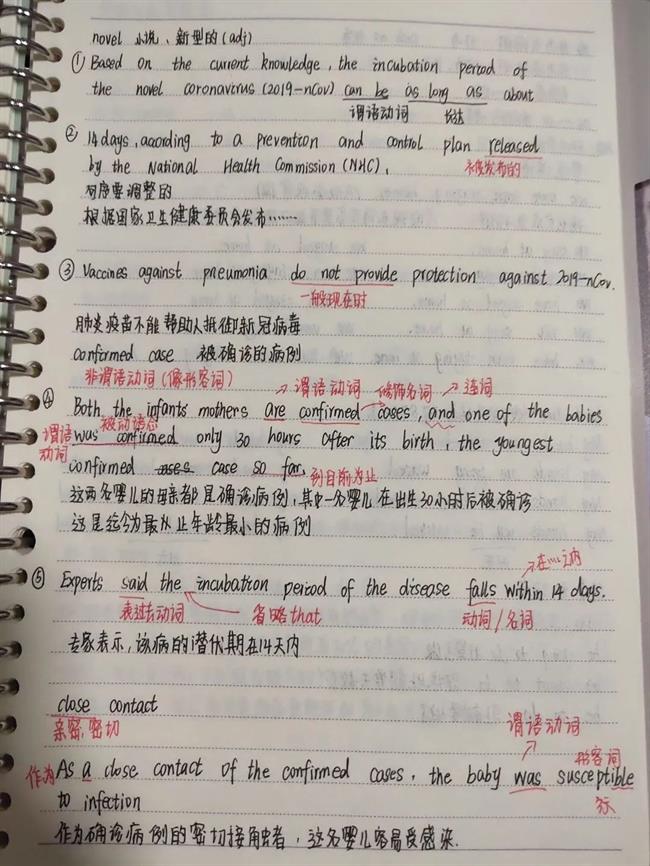 novel 小说、新型的(adj)
① Based on the current knowledge, the incubation period of
the novel coronavirus (2019-nCov) can be as long as about
谓语动词 长达
② 14 days, according to a prevention and control plan released
by the National Health Commission (NHC). 被发布的
语序要调整的
根据国家卫生健康委员会发布……
③ Vaccines against pneumonia do not provide protection against 2019-nCov.
一般现在时
肺炎疫苗不能帮助人抵御新冠病毒
confirmed case 被确诊的病例
非谓语动词(像形容词) 谓语动词 修饰名词 连词
④ Both the infants mothers are confirmed cases, and one of the babies
被动语态
谓语动词 was confirmed only 30 hours after its birth, the youngest
confirmed case so far. 到目前为止
这两名婴儿的母亲都是确诊病例,其中一名婴儿在出生30小时后被确诊
这是迄今为止年龄最小的病例
在…之内
⑤ Experts said the incubation period of the disease falls within 14 days.
表过去动词 省略that 动词/名词
专家表示,该病的潜伏期在14天内
close contact
亲密,密切 谓语动词
形容词
作为 As a close contact of the confirmed cases, the baby was susceptible
to infection
作为确诊病例的密切接触者,这名婴儿容易受感染.